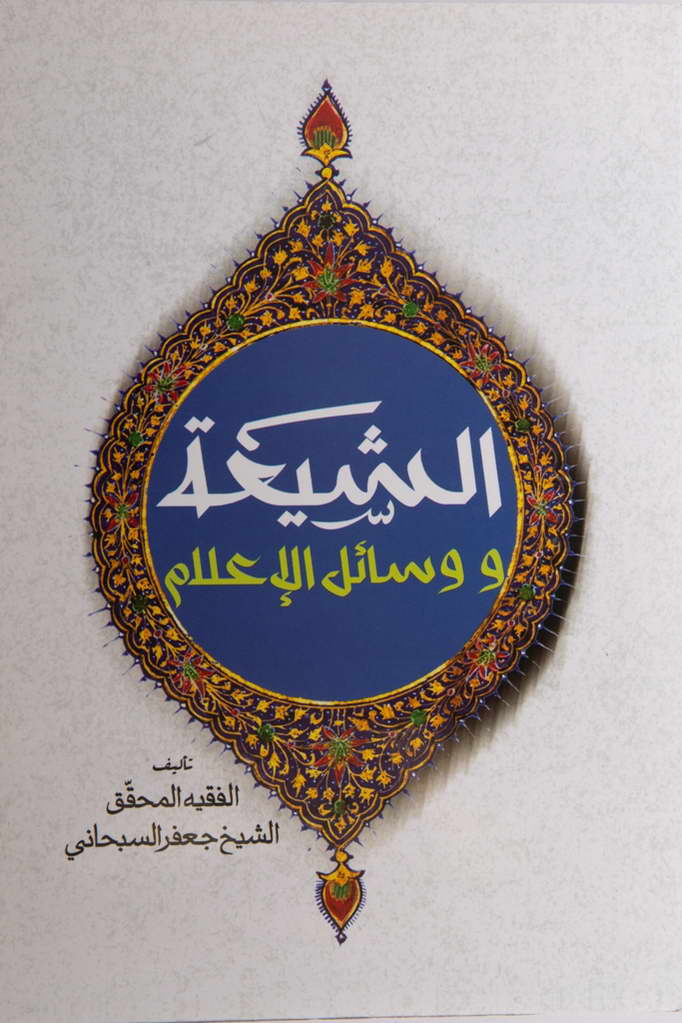 الشيعة
و وسائل الإعلام
تأليف
الفقيه المحقّق
الشيخ جعفر السبحاني